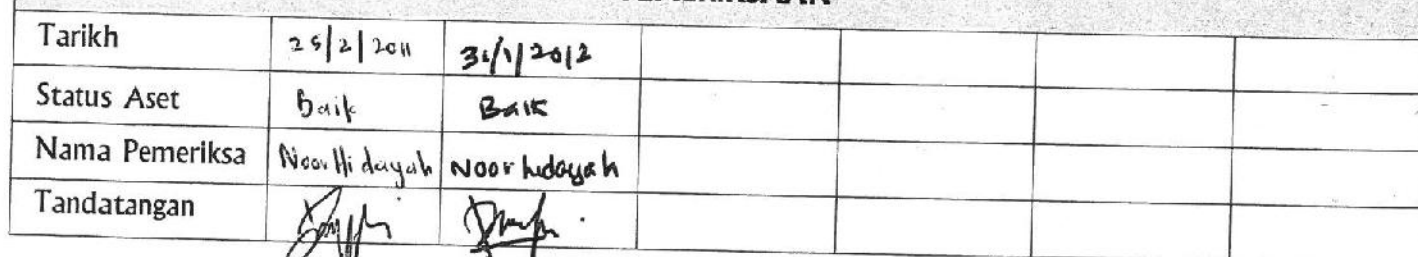 Tarikh 25/2/2011 31/1/2012
Status Aset Baik Baik
Nama Pemeriksa Noor Hidayah Noor hidayah
Tandatangan